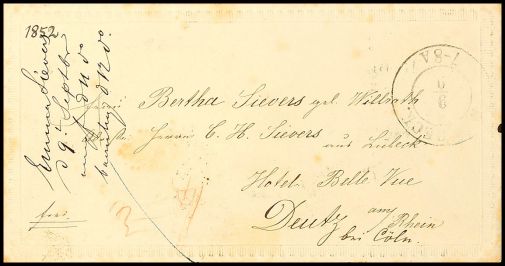 1852
Emma Sievers
d 9ᵗ Septbr
d 11 do
d 12 do
Bertha Sievers
Herrn C. H. Sievers
aus Lübeck
Hotel Belle Vue
Deutz am Rhein
bei Cöln.
7-8 A